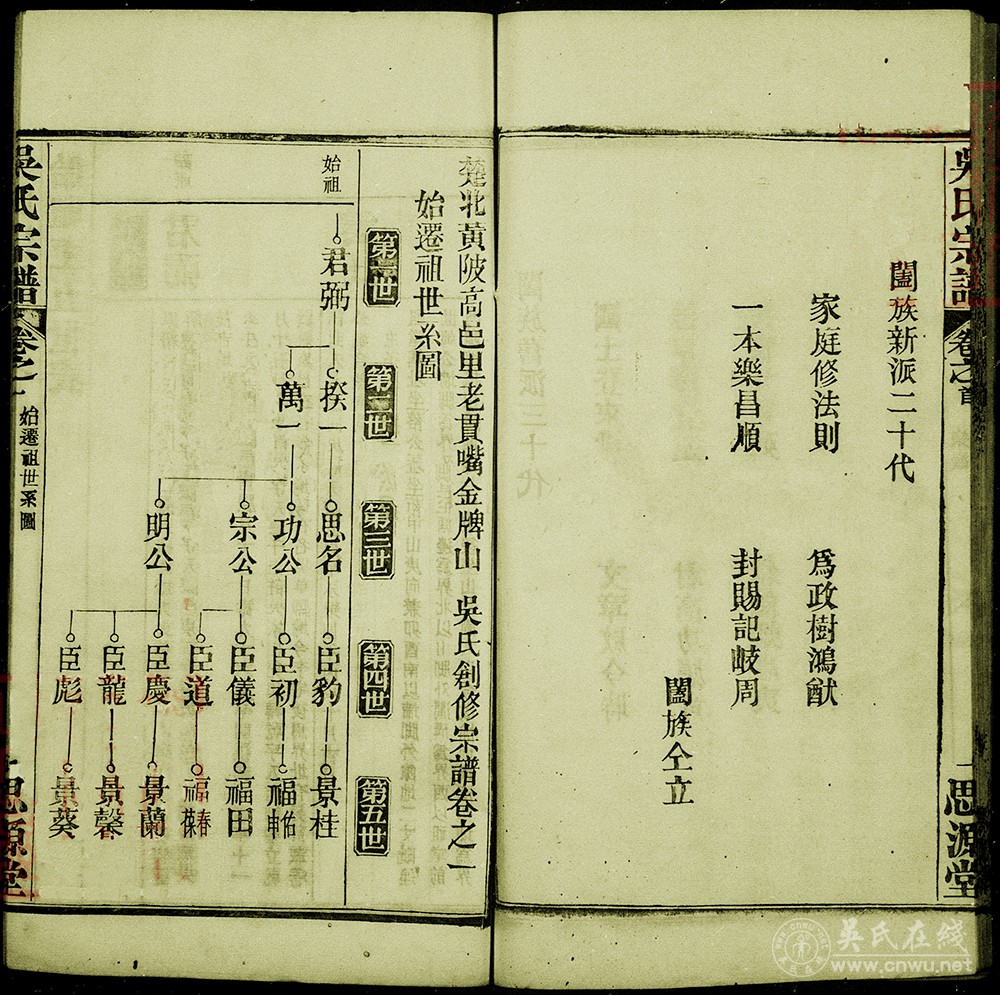 吳氏宗譜
卷之首
一思源堂
闔族新派二十代
家庭修法則 爲政樹鴻猷
一本樂昌順 封賜記岐周
闔族仝立
楚北黃陂高邑里老貫嘴金牌山 吳氏創修宗譜卷之一
始遷祖世系圖
第一世 第二世 第三世 第四世 第五世
始祖 君弼 揆一 思名 臣豹 景桂
萬一 功公 臣初 福佑 福申
宗公 臣儀 福田
臣道 福春 福葆
明公 臣慶 景蘭
臣龍 景馨
臣彪 景葵
吳氏宗譜
卷之一
始遷祖世系圖
思源堂
吳氏在线
www.cnwu.net